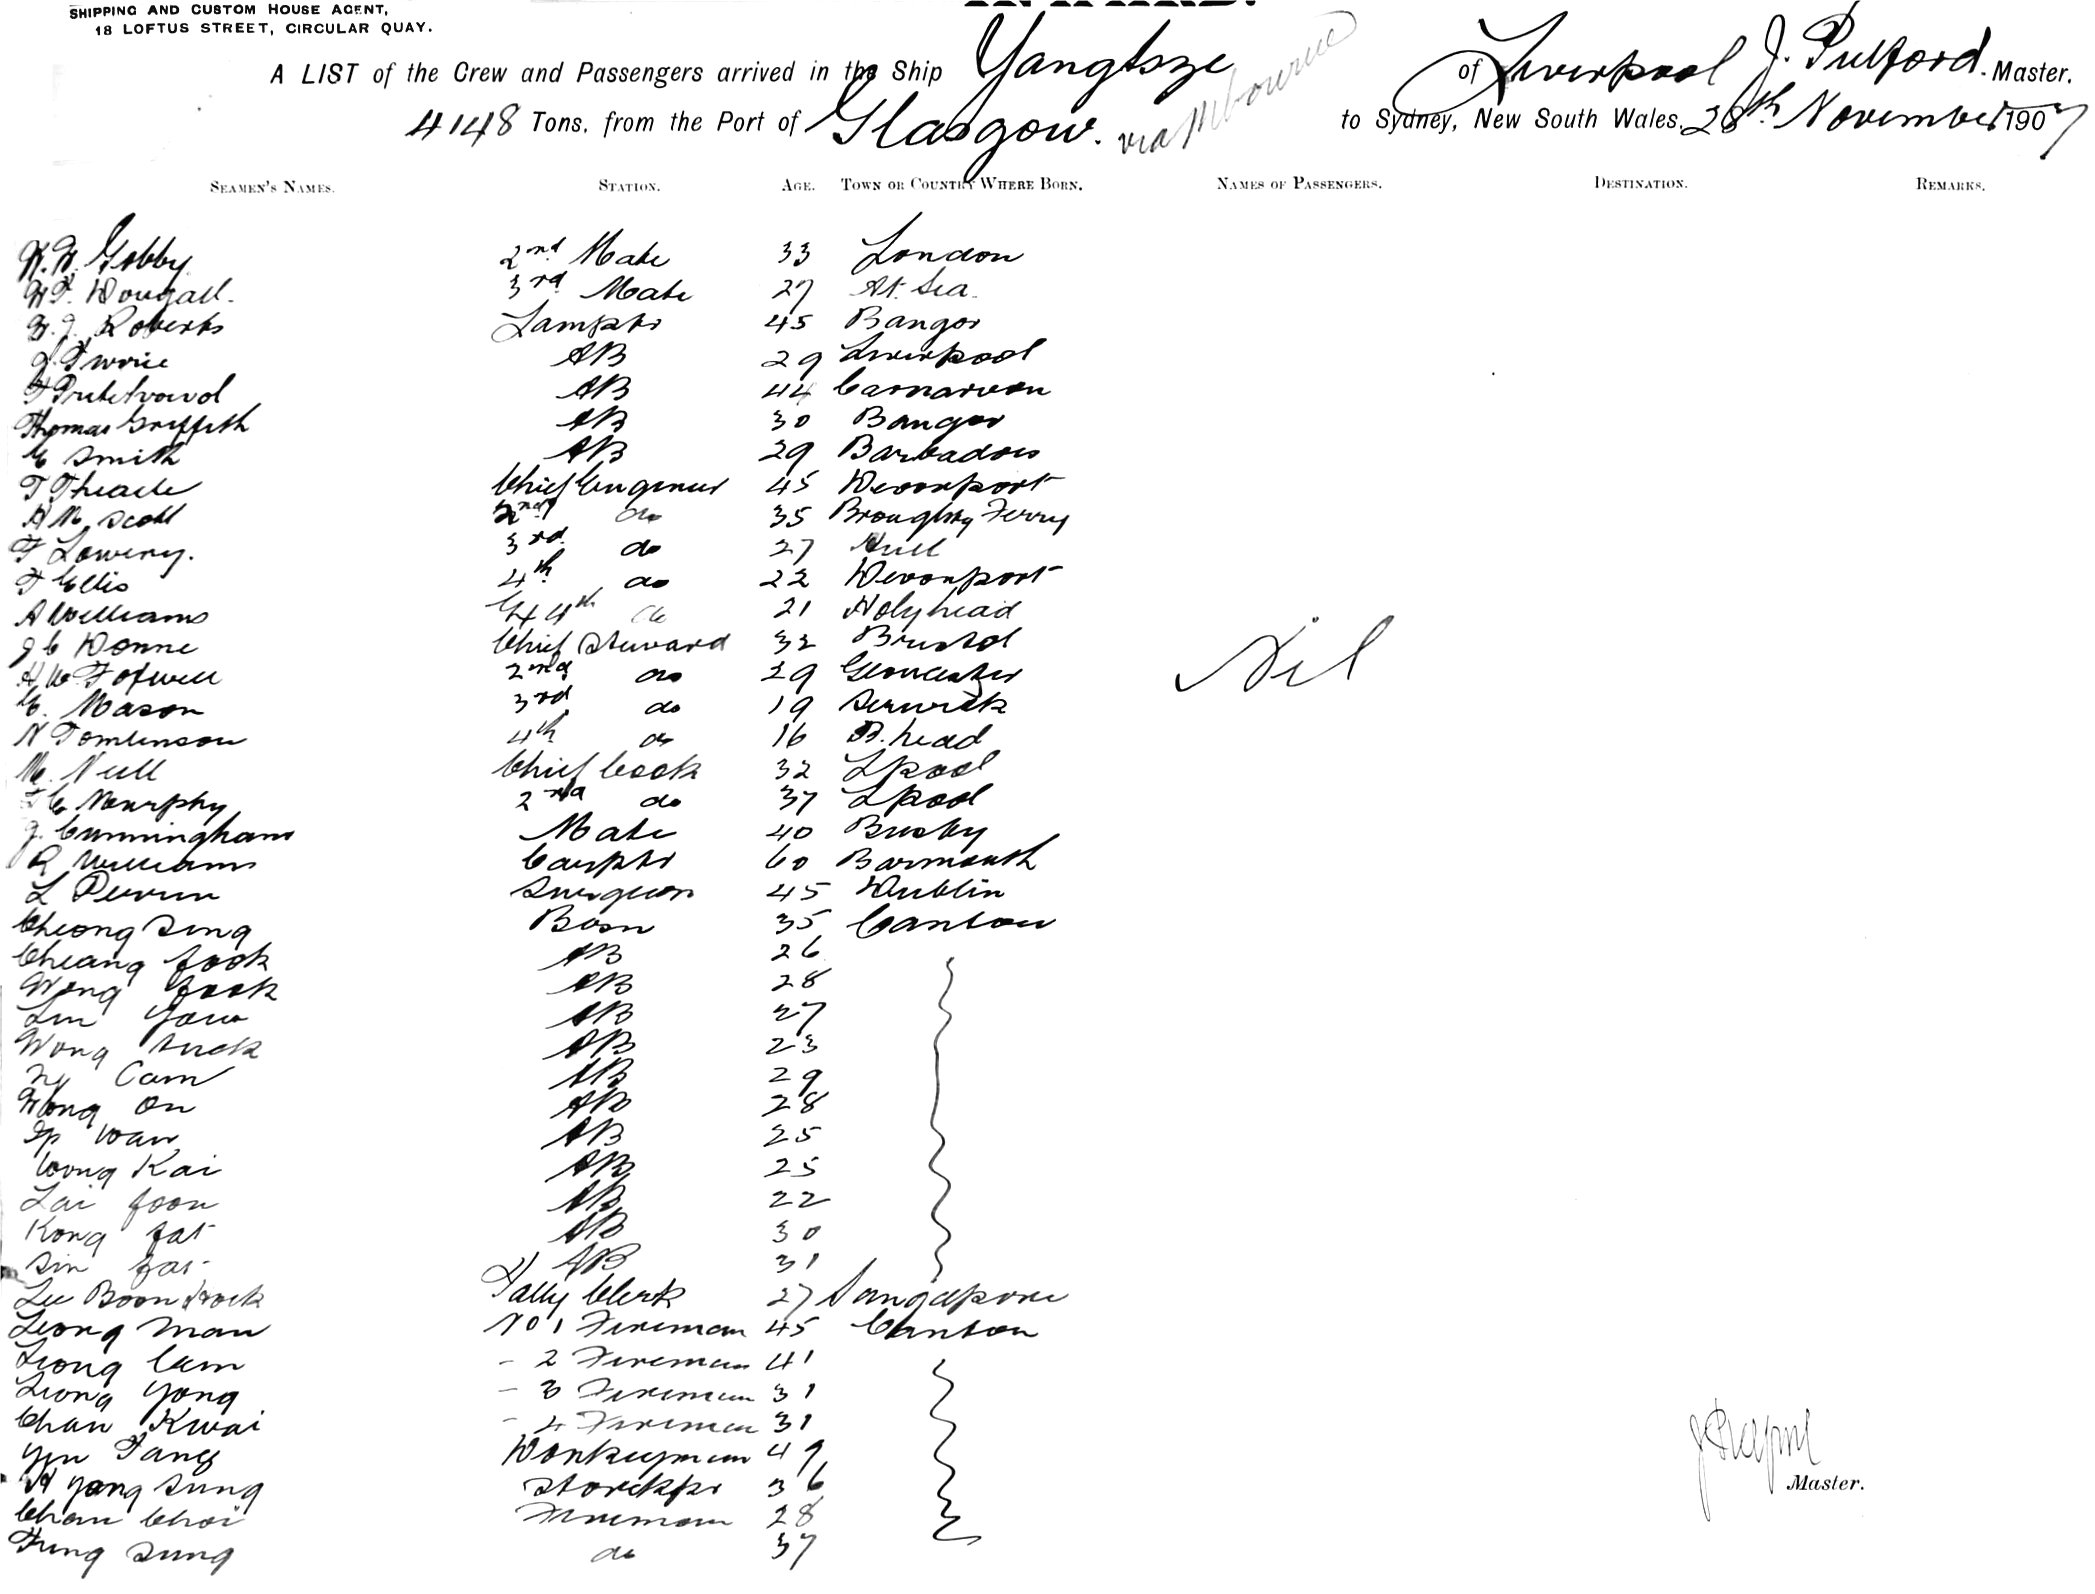 SHIPPING AND CUSTOM HOUSE AGENT,
18 LOFTUS STREET, CIRCULAR QUAY.
A LIST of the Crew and Passengers arrived in the Ship Yangtsze of Liverpool J. Pulford. Master.
4148 Tons, from the Port of Glasgow. via Melbourne to Sydney, New South Wales, 28th November 1907
SEAMEN'S NAMES. STATION. AGE. TOWN OR COUNTRY WHERE BORN. NAMES OF PASSENGERS. DESTINATION. REMARKS.
Gobby 2nd Mate 33 London
Dougall. 3rd Mate 27 At Sea.
Roberts Lamptr 45 Bangor
AB 29 Liverpool
AB 44 Carnarvon
Thomas Griffith AB 30 Bangor
E Smith AB 29 Barbadoes
T Theade Chief Engineer 45 Devonport
Scott 2nd do 35 Broughty Ferry
T Lowery. 3rd do 27 Hull
F Ellis 4th do 22 Devonport
A Williams 4th do 21 Holyhead
J C Donne Chief Steward 32 Bristol
H W Tofwell 2nd do 29 Gloucester
E. Mason 3rd do 19 Serwick
N Tomlinson 4th do 16 B.head
Neill Chief Cook 32 Lpool
Murphy 2nd do 37 Lpool
J. Cunningham Mate 40 Busby
R Williams Carptr 60 Barmouth
L Perrin Surgeon 45 Dublin
Cheong Sing Bosn 35 Canton
Cheang Fook AB 26
Wong Fook AB 28
Lin Yow AB 27
Wong Suck AB 23
Ng Cam AB 29
Wong On AB 28
Ip Wan AB 25
Wong Kai AB 25
Lai Foon AB 22
Kong Fat AB 30
Sin Fat AB 31
Lee Boon Hock Tally Clerk 27 Singapore
Leong Man No 1 Fireman 45 Canton
Leong Cam - 2 Fireman 41
Leong Yong - 3 Fireman 31
Chan Kwai - 4 Fireman 31
Yin Tang Donkeyman 49
Yong Sung Storekpr 36
Chan Choi Fireman 28
Fung Sung do 37
Nil
Master.